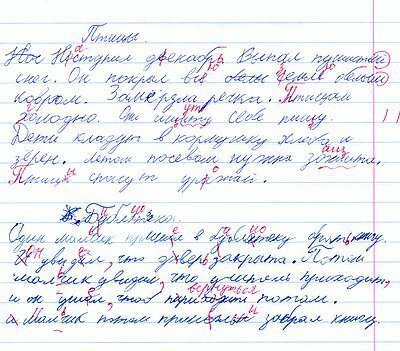 Птицы.
Наступил декабрь. Выпал пушистый
снег. Он покрыл всё землю белым
ковром. Замёрзла речка. Птицам
холодно. Они ищут себе пищу.
Дети кладут в кормушку хлеб и
зёрен. Летом посевам нужна защита.
Птицы спасут урожай.
Библиотека.
Один мальчик пришел в библиотеку брать книгу.
Он увидел, что дверь закрыта. Потом
мальчик увидел, что учитель приходит,
и он ушел, чтоб вернуться потом.
Мальчик потом пришел и забрал книгу.